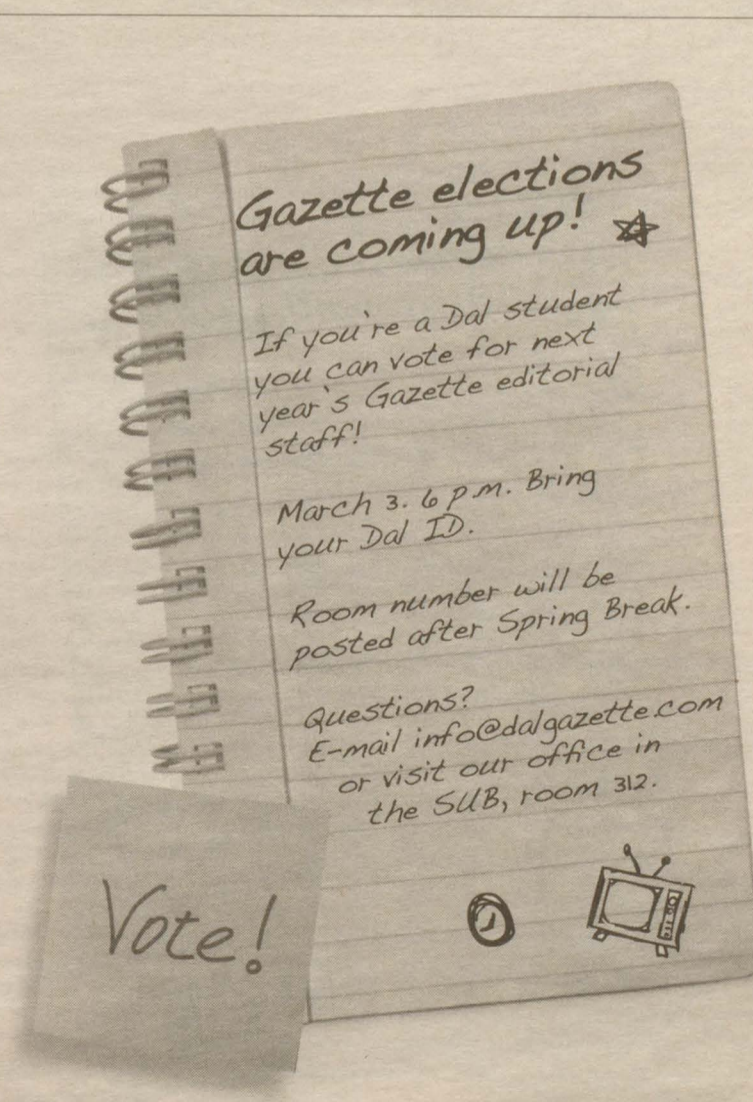 Gazette elections
are coming up!
If you're a Dal student
you can vote for next
year's Gazette editorial
staff!
March 3. 6 p.m. Bring
your Dal ID.
Room number will be
posted after Spring Break.
Questions?
E-mail info@dalgazette.com
or visit our office in
the SUB, room 312.
Vote!